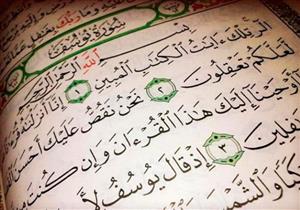 سُورَةُ يُوسُفَ
بِسْمِ اللَّهِ الرَّحْمَٰنِ الرَّحِيمِ
الٓر تِلْكَ ءَايَٰتُ الْكِتَٰبِ الْمُبِينِ ١ إِنَّا أَنزَ
لَّعَلَّكُمْ تَعْقِلُونَ ٢ نَحْنُ نَقُصُّ عَلَيْكَ أَحْسَنَ
أَوْحَيْنَا إِلَيْكَ هَٰذَا الْقُرْءَانَ وَإِن كُنتَ مِن
ٱلْغَٰفِلِينَ ٣ إِذْ قَالَ يُوسُفُ لِأَ
كَبًا وَالشَّمْسَ